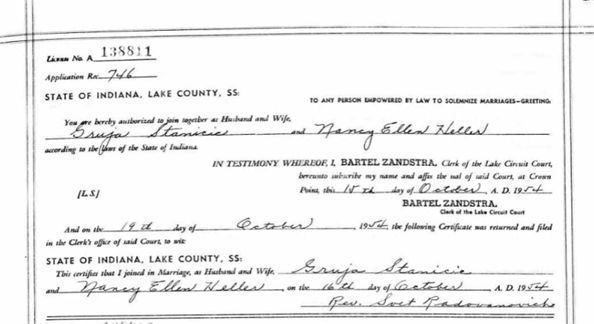 License No. A 138811
Application Rec. 746
STATE OF INDIANA, LAKE COUNTY, SS:
TO ANY PERSON EMPOWERED BY LAW TO SOLEMNIZE MARRIAGES—GREETING.
You are hereby authorized to join together as Husband and Wife,
Gruja Stanicic and Nancy Ellen Heller
according to the laws of the State of Indiana.
IN TESTIMONY WHEREOF, I, BARTEL ZANDSTRA, Clerk of the Lake Circuit Court,
hereunto subscribe my name and affix the seal of said Court, at Crown
[L.S.] Point, this 15th day of October, A. D. 1954
BARTEL ZANDSTRA,
Clerk of the Lake Circuit Court
And on the 19th day of October 1954, the following Certificate was returned and filed
in the Clerk's office of said Court, to wit:
STATE OF INDIANA, LAKE COUNTY, SS:
This certifies that I joined in Marriage, as Husband and Wife, Gruja Stanicic
and Nancy Ellen Heller, on the 16th day of October A. D. 1954
Rev. Svet Radovanovich